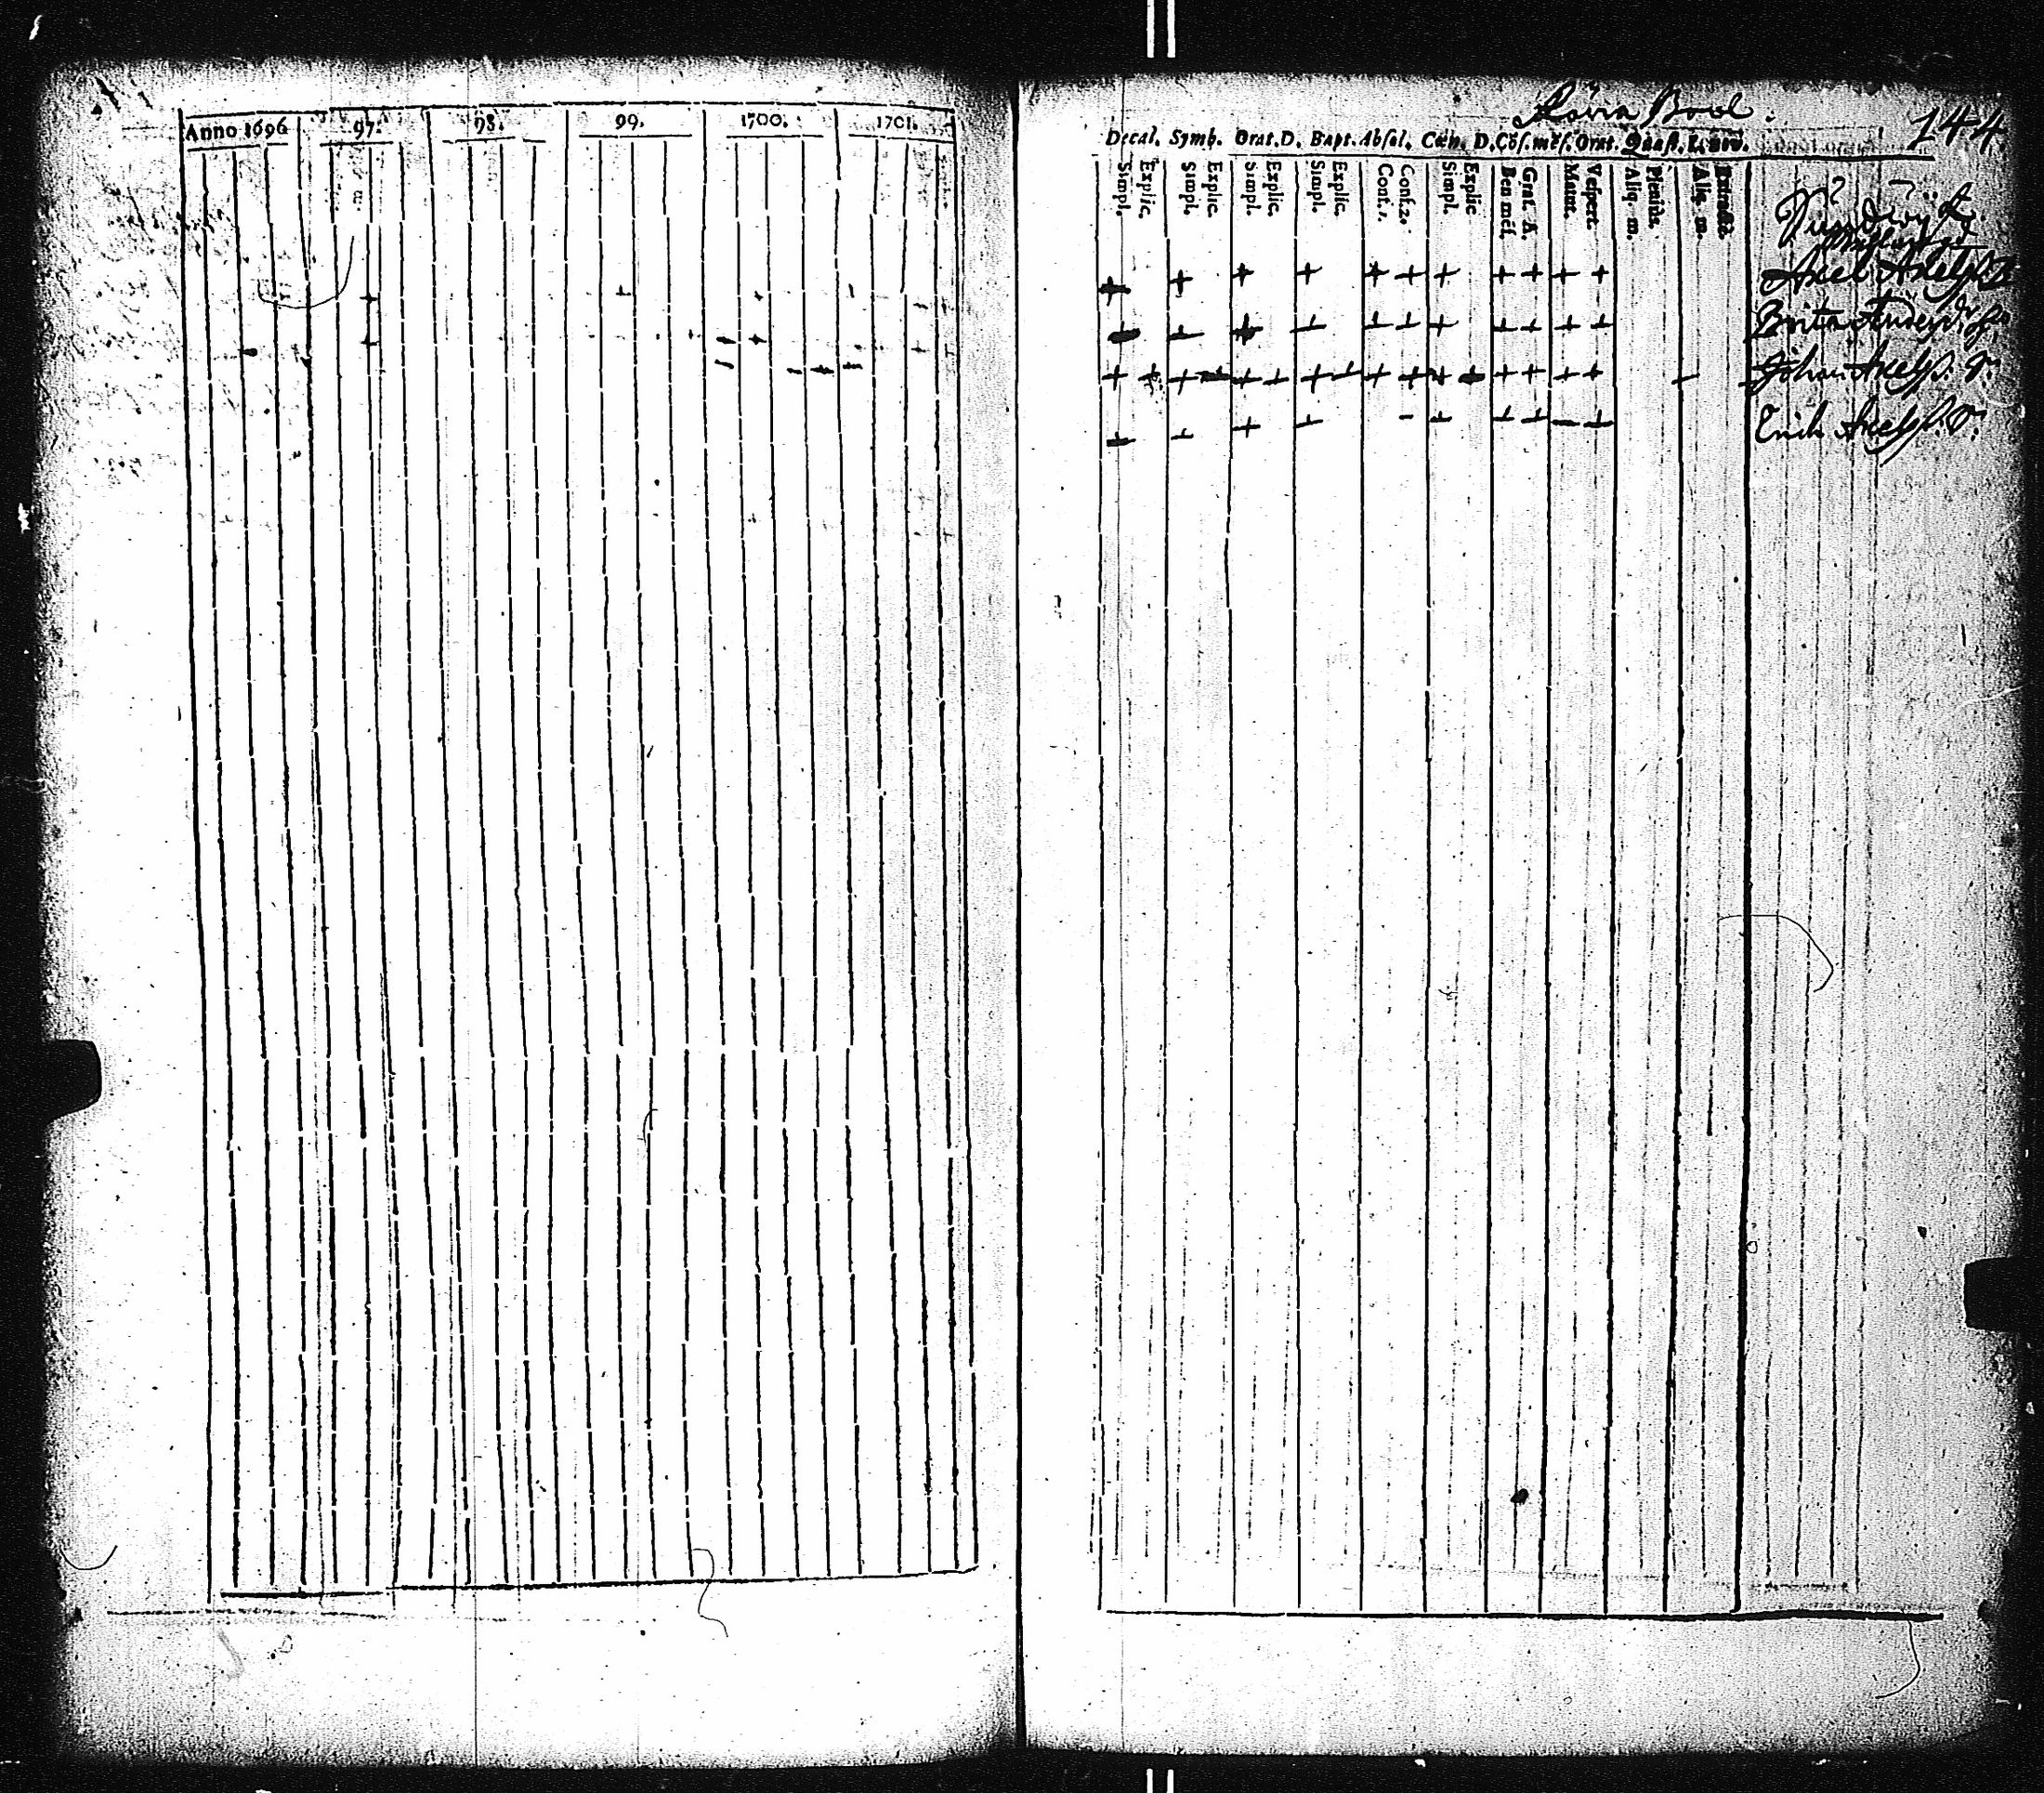 Anno 1696 97. 98. 99. 1700. 1701.
Bool.
144
Decal. Symb. Orat. D. Bapt. Absol. Cœn. D. Cõs. mẽs. Orat. Quæst.
Simpl. Explic. Simpl. Explic. Simpl. Explic. Simpl. Explic. Conf. 1. Conf. 2. Simpl. Explic Ben mẽs. Grat. A. Matut. Vespert. Aliq. m. Pleniùs. Aliq. m.
Axel Axelss.
Brita Andersdr
Johan Axelss.
Erik Axelss.